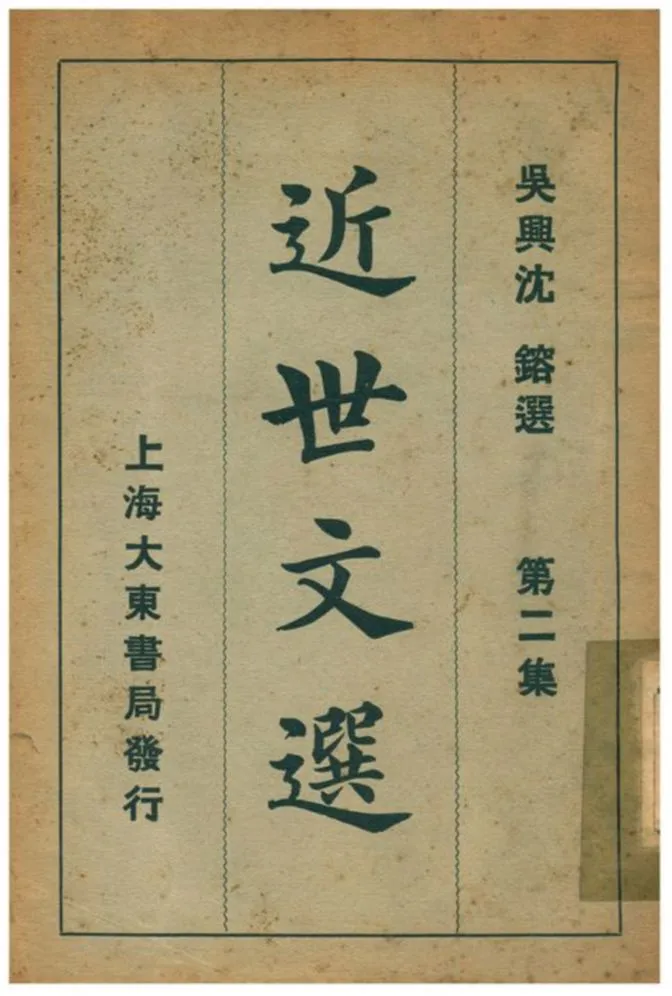 吳興沈鎔選 第二集
近世文選
上海大東書局發行